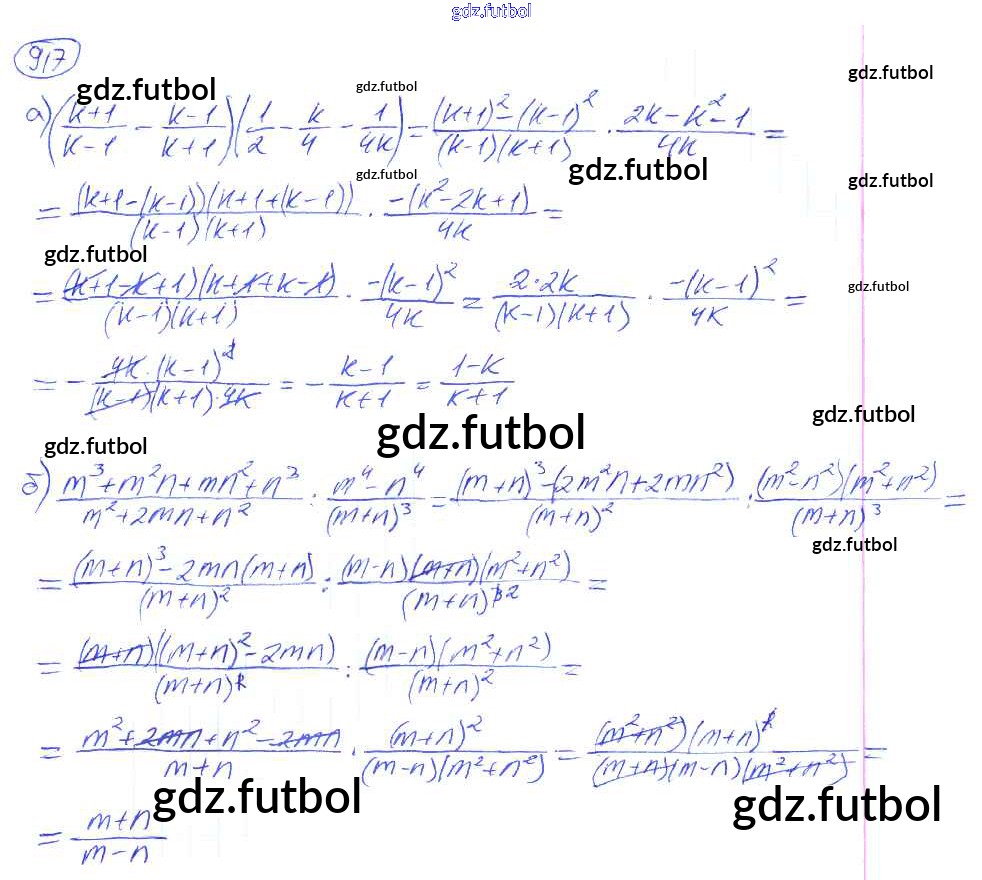 gdz.futbol
917
gdz.futbol gdz.futbol gdz.futbol
а) ((k+1)/(k-1) - (k-1)/(k+1)) (1/2 - k/4 - 1/4k) = ((k+1)² - (k-1)²)/((k-1)(k+1)) · (2k-k²-1)/4k =
gdz.futbol gdz.futbol gdz.futbol
= ((k+1-(k-1))(k+1+(k-1)))/((k-1)(k+1)) · (-(k²-2k+1))/4k =
gdz.futbol
= ((k+1-k+1)(k+1+k-1))/((k-1)(k+1)) · (-(k-1)²)/4k = (2·2k)/((k-1)(k+1)) · (-(k-1)²)/4k =
gdz.futbol
= - (4k·(k-1)²)/((k-1)(k+1)·4k) = - (k-1)/(k+1) = (1-k)/(k+1)
gdz.futbol gdz.futbol gdz.futbol
б) (m³+m²n+mn²+n³)/(m²+2mn+n²) : (m⁴-n⁴)/(m+n)³ = ((m+n)³-(2m²n+2mn²))/(m+n)² : ((m²-n²)(m²+n²))/(m+n)³ =
gdz.futbol
= ((m+n)³-2mn(m+n))/(m+n)² : ((m-n)(m+n)(m²+n²))/(m+n)³² =
= ((m+n)((m+n)²-2mn))/(m+n)² : ((m-n)(m²+n²))/(m+n)² =
= (m²+2mn+n²-2mn)/(m+n) · (m+n)²/((m-n)(m²+n²)) = ((m²+n²)(m+n)²)/((m+n)(m-n)(m²+n²)) =
gdz.futbol gdz.futbol
= (m+n)/(m-n)